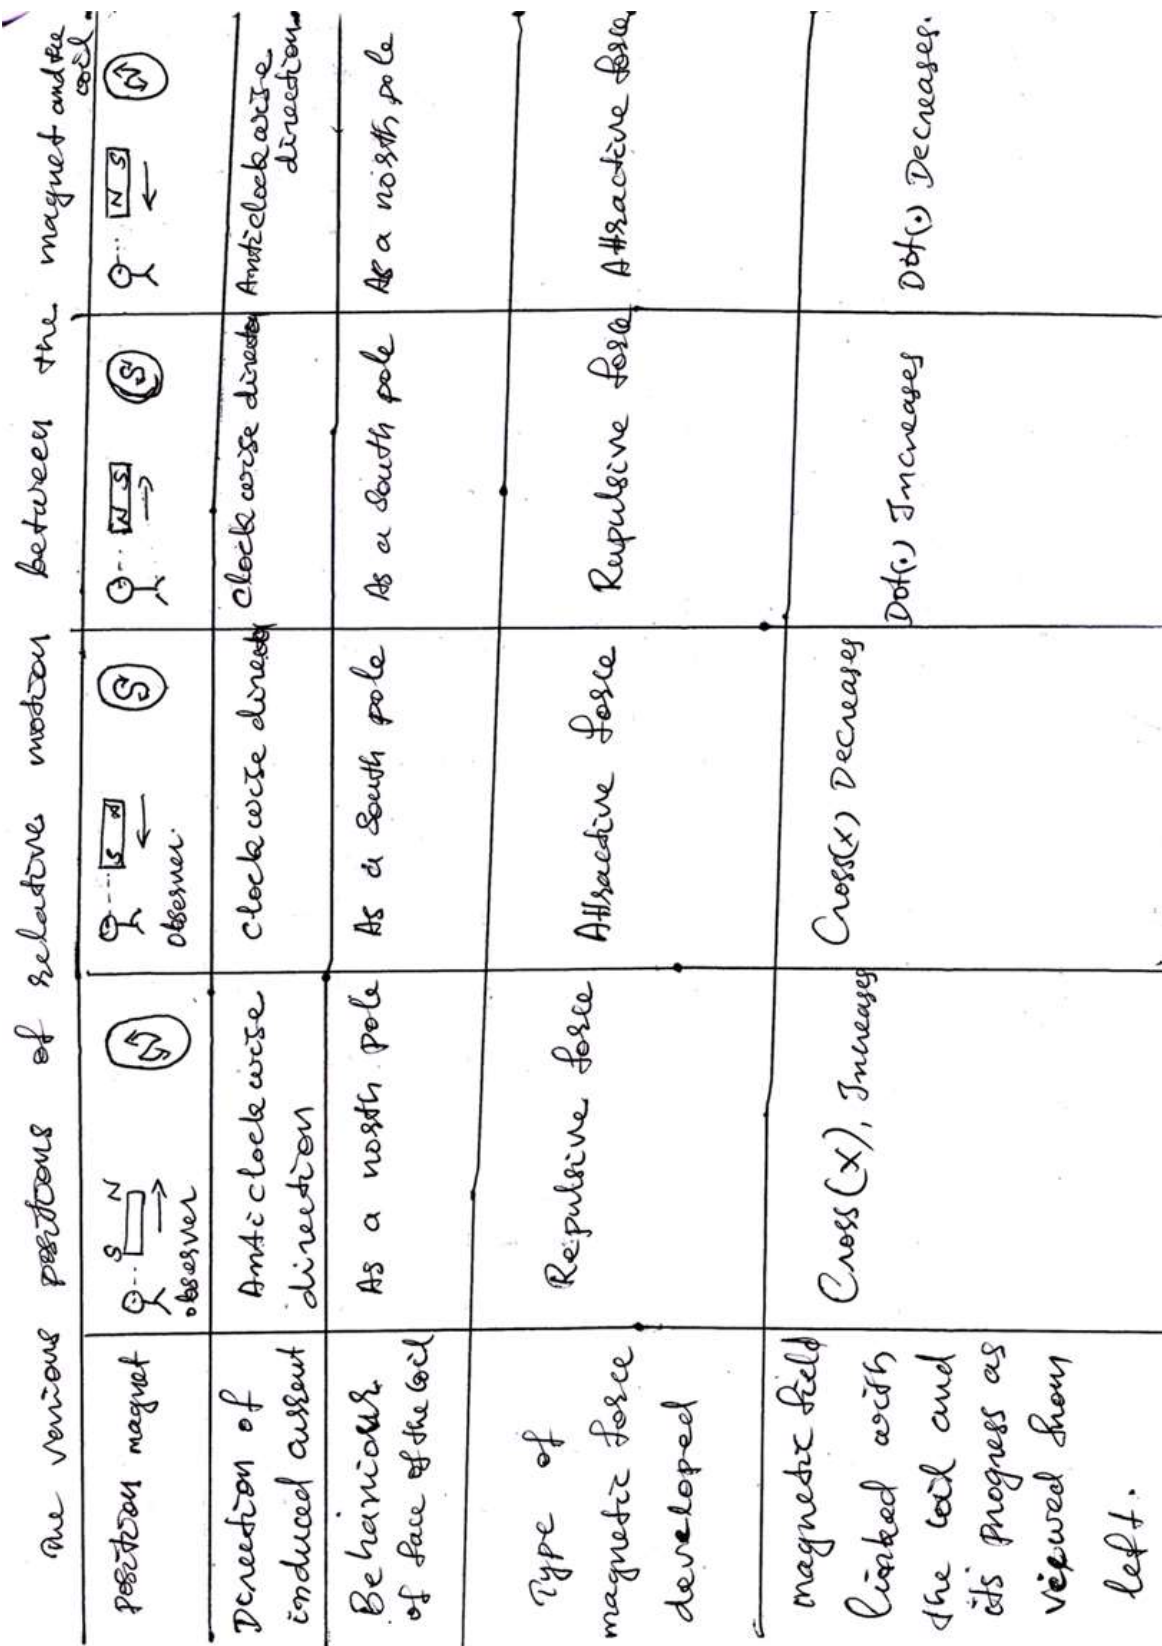 The various positions of relative motion between the magnet and the coil.
Position magnet
S N
observer
N
S N
observer
S
N S
S
N S
N
Direction of induced current
Anticlockwise direction
Clockwise direction
Clockwise direction
Anticlockwise direction
Behaviour of face of the coil
As a north pole
As a South pole
As a South pole
As a north pole
Type of magnetic force developed
Repulsive force
Attractive force
Rupulsive force
Attractive force
magnetic field linked with the coil and its progress as viewed from left.
Cross (x), Increases
Cross(x) Decreases
Dot(.) Increases
Dot(.) Decreases.